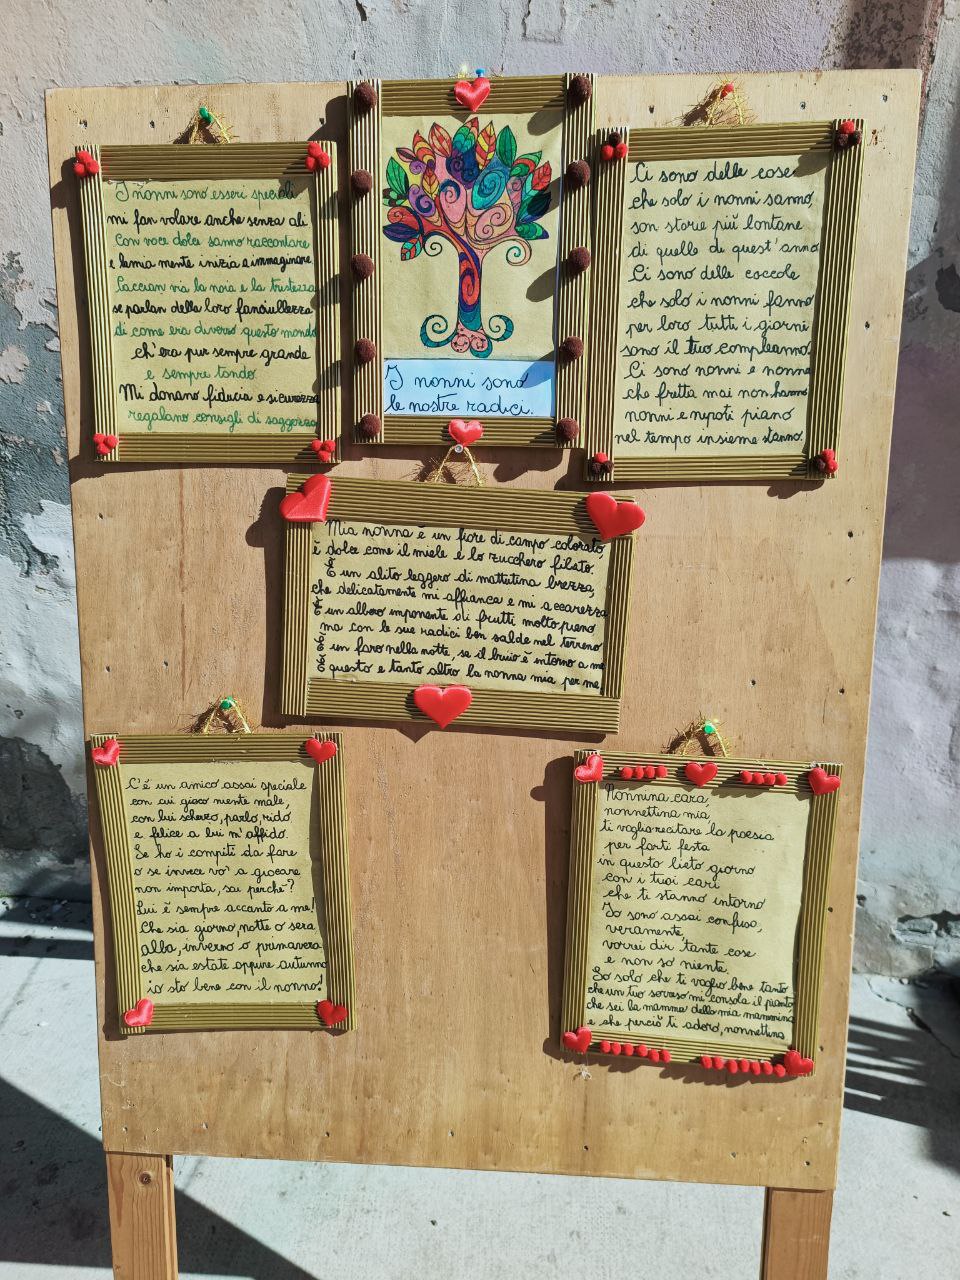 I nonni sono esseri speciali
mi fan volare anche senza ali
Con voce dolce sanno raccontare
e la mia mente inizia a immaginare
Caccian via la noia e la tristezza
se parlan della loro fanciullezza
di come era diverso questo mondo
ch'era pur sempre grande
e sempre tondo.
Mi donano fiducia e sicurezza
regalano consigli di saggezza
I nonni sono
le nostre radici.
Ci sono delle cose
che solo i nonni sanno,
son storie più lontane
di quelle di quest'anno
Ci sono delle coccole
che solo i nonni fanno
per loro tutti i giorni
sono il tuo compleanno.
Ci sono nonni e nonne
che fretta mai non hanno
nonni e nipoti piano
nel tempo insieme stanno.
Mia nonna è un fiore di campo colorato,
è dolce come il miele e lo zucchero filato,
È un alito leggero di mattutina brezza,
che delicatamente mi affianca e mi accarezza
È un albero imponente di frutti molto pieno
ma con le sue radici ben salde nel terreno
È un faro nella notte, se il buio è intorno a me
È questo e tanto altro la nonna mia per me
C'é un amico assai speciale
con cui gioco niente male,
con lui scherzo, parlo, rido
e felice a lui m'affido.
Se ho i compiti da fare
o se invece vo' a giocare
non importa, sai perchè?
Lui è sempre accanto a me!
Che sia giorno, notte o sera
alba, inverno o primavera
che sia estate oppure autunno
io sto bene con il nonno!
Nonnina cara,
nonnettina mia,
ti voglio recitare la poesia
per farti festa
in questo lieto giorno
con i tuoi cari
che ti stanno intorno
Io sono assai confuso,
veramente,
vorrei dir tante cose
e non so niente.
So solo che ti voglio bene tanto
che un tuo sorriso mi consola il pianto,
che sei la mamma della mia mammina
e che perciò ti adoro, nonnettina